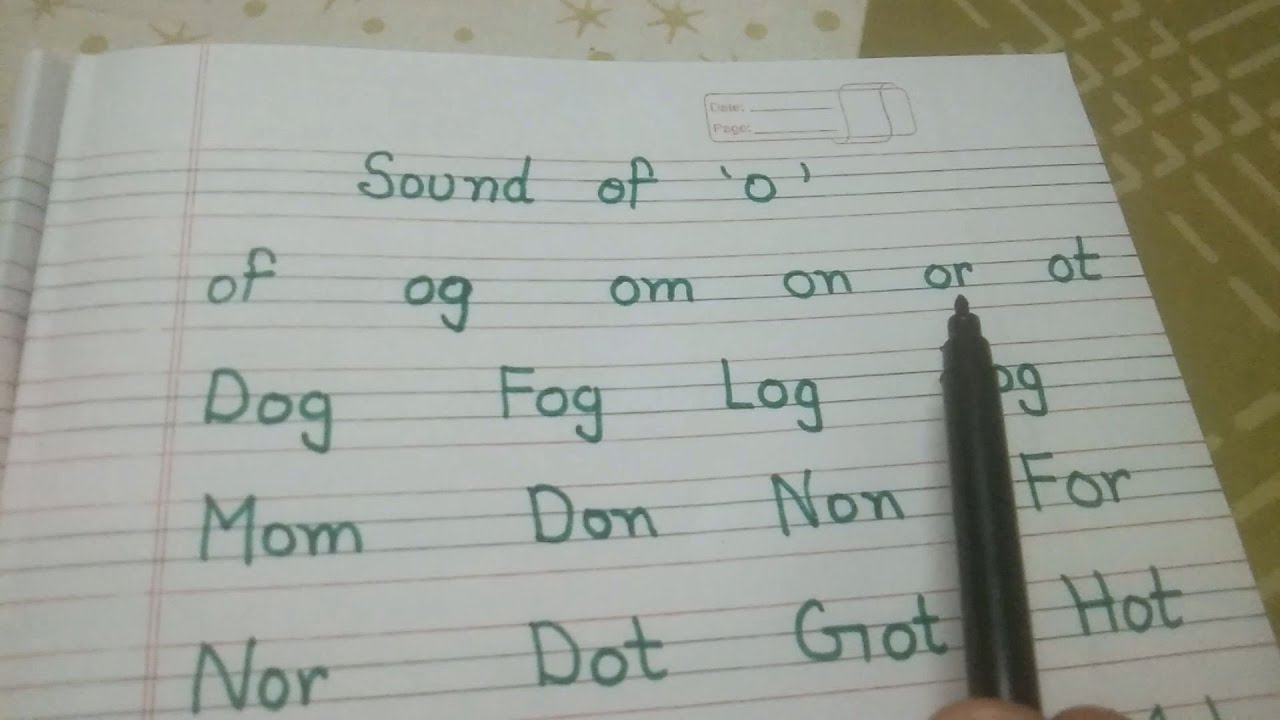 Date:
Page:
Sound of 'o'
of og om on or ot
Dog Fog Log
Mom Don Non For
Nor Dot Got Hot